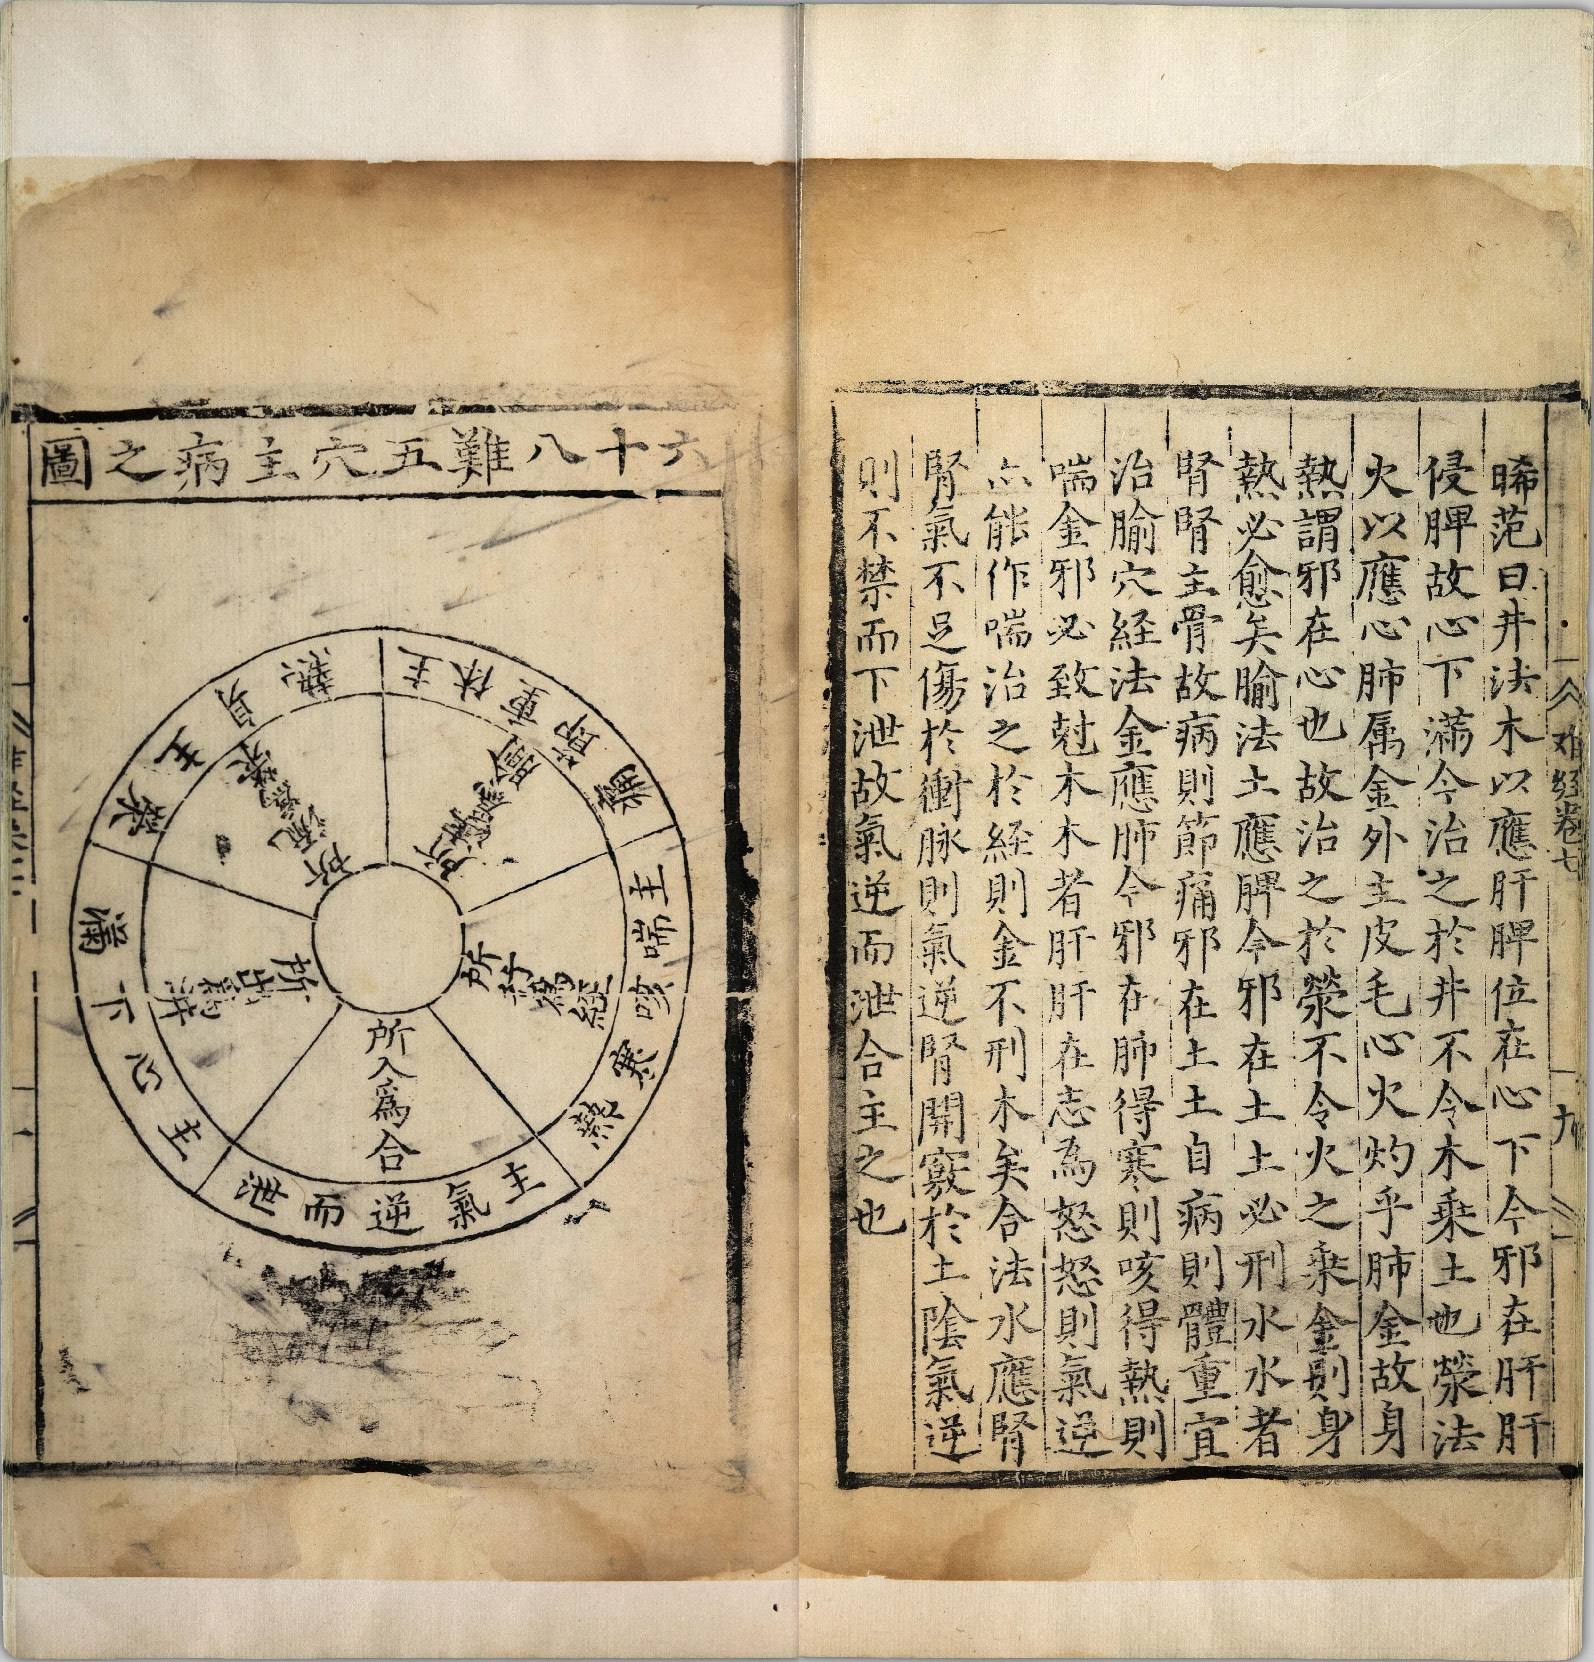 晞范曰井法木以應肝脾位在心下今邪在肝肝
侵脾故心下滿今治之於井不令木乗土也滎法
火以應心肺属金外主皮毛心火灼乎肺金故身
熱謂邪在心也故治之於滎不令火之乗金則身
熱必愈矣腧法土應脾今邪在土土必刑水水者
腎腎主骨故病則節痛邪在土土自病則體重宜
治腧穴経法金應肺今邪在肺得寒則咳得熱則
喘金邪必致尅木木者肝肝在志為怒怒則氣逆
亦能作喘治之於経則金不刑木矣合法水應腎
腎氣不足傷於衝脉則氣逆腎開竅於土陰氣逆
則不禁而下泄故氣逆而泄合主之也
难経卷七
九
六十八難五穴主病之圖
所出爲井
主心下滿
所流爲滎
滎主身熱
所注爲腧
主体重節痛
所行爲經
主喘咳寒熱
所入爲合
主氣逆而泄